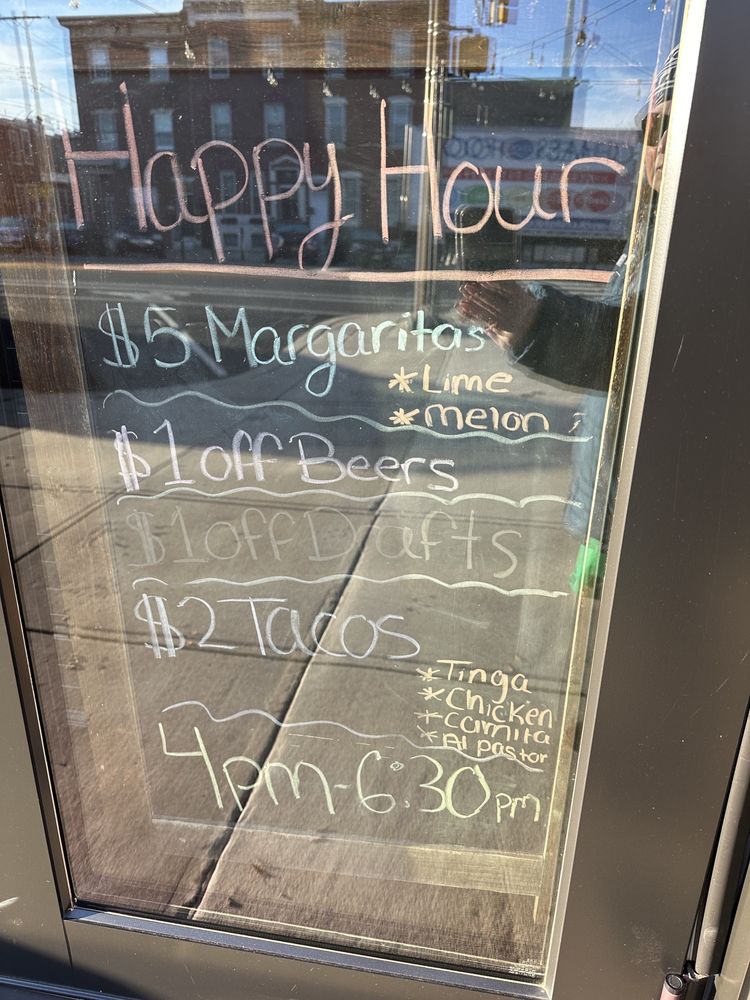 Happy Hour
$5 Margaritas
*Lime
*melon
$1 off Beers
$1 off Drafts
$2 Tacos
*Tinga
*Chicken
*Carnita
*Al pastor
4pm-6:30pm